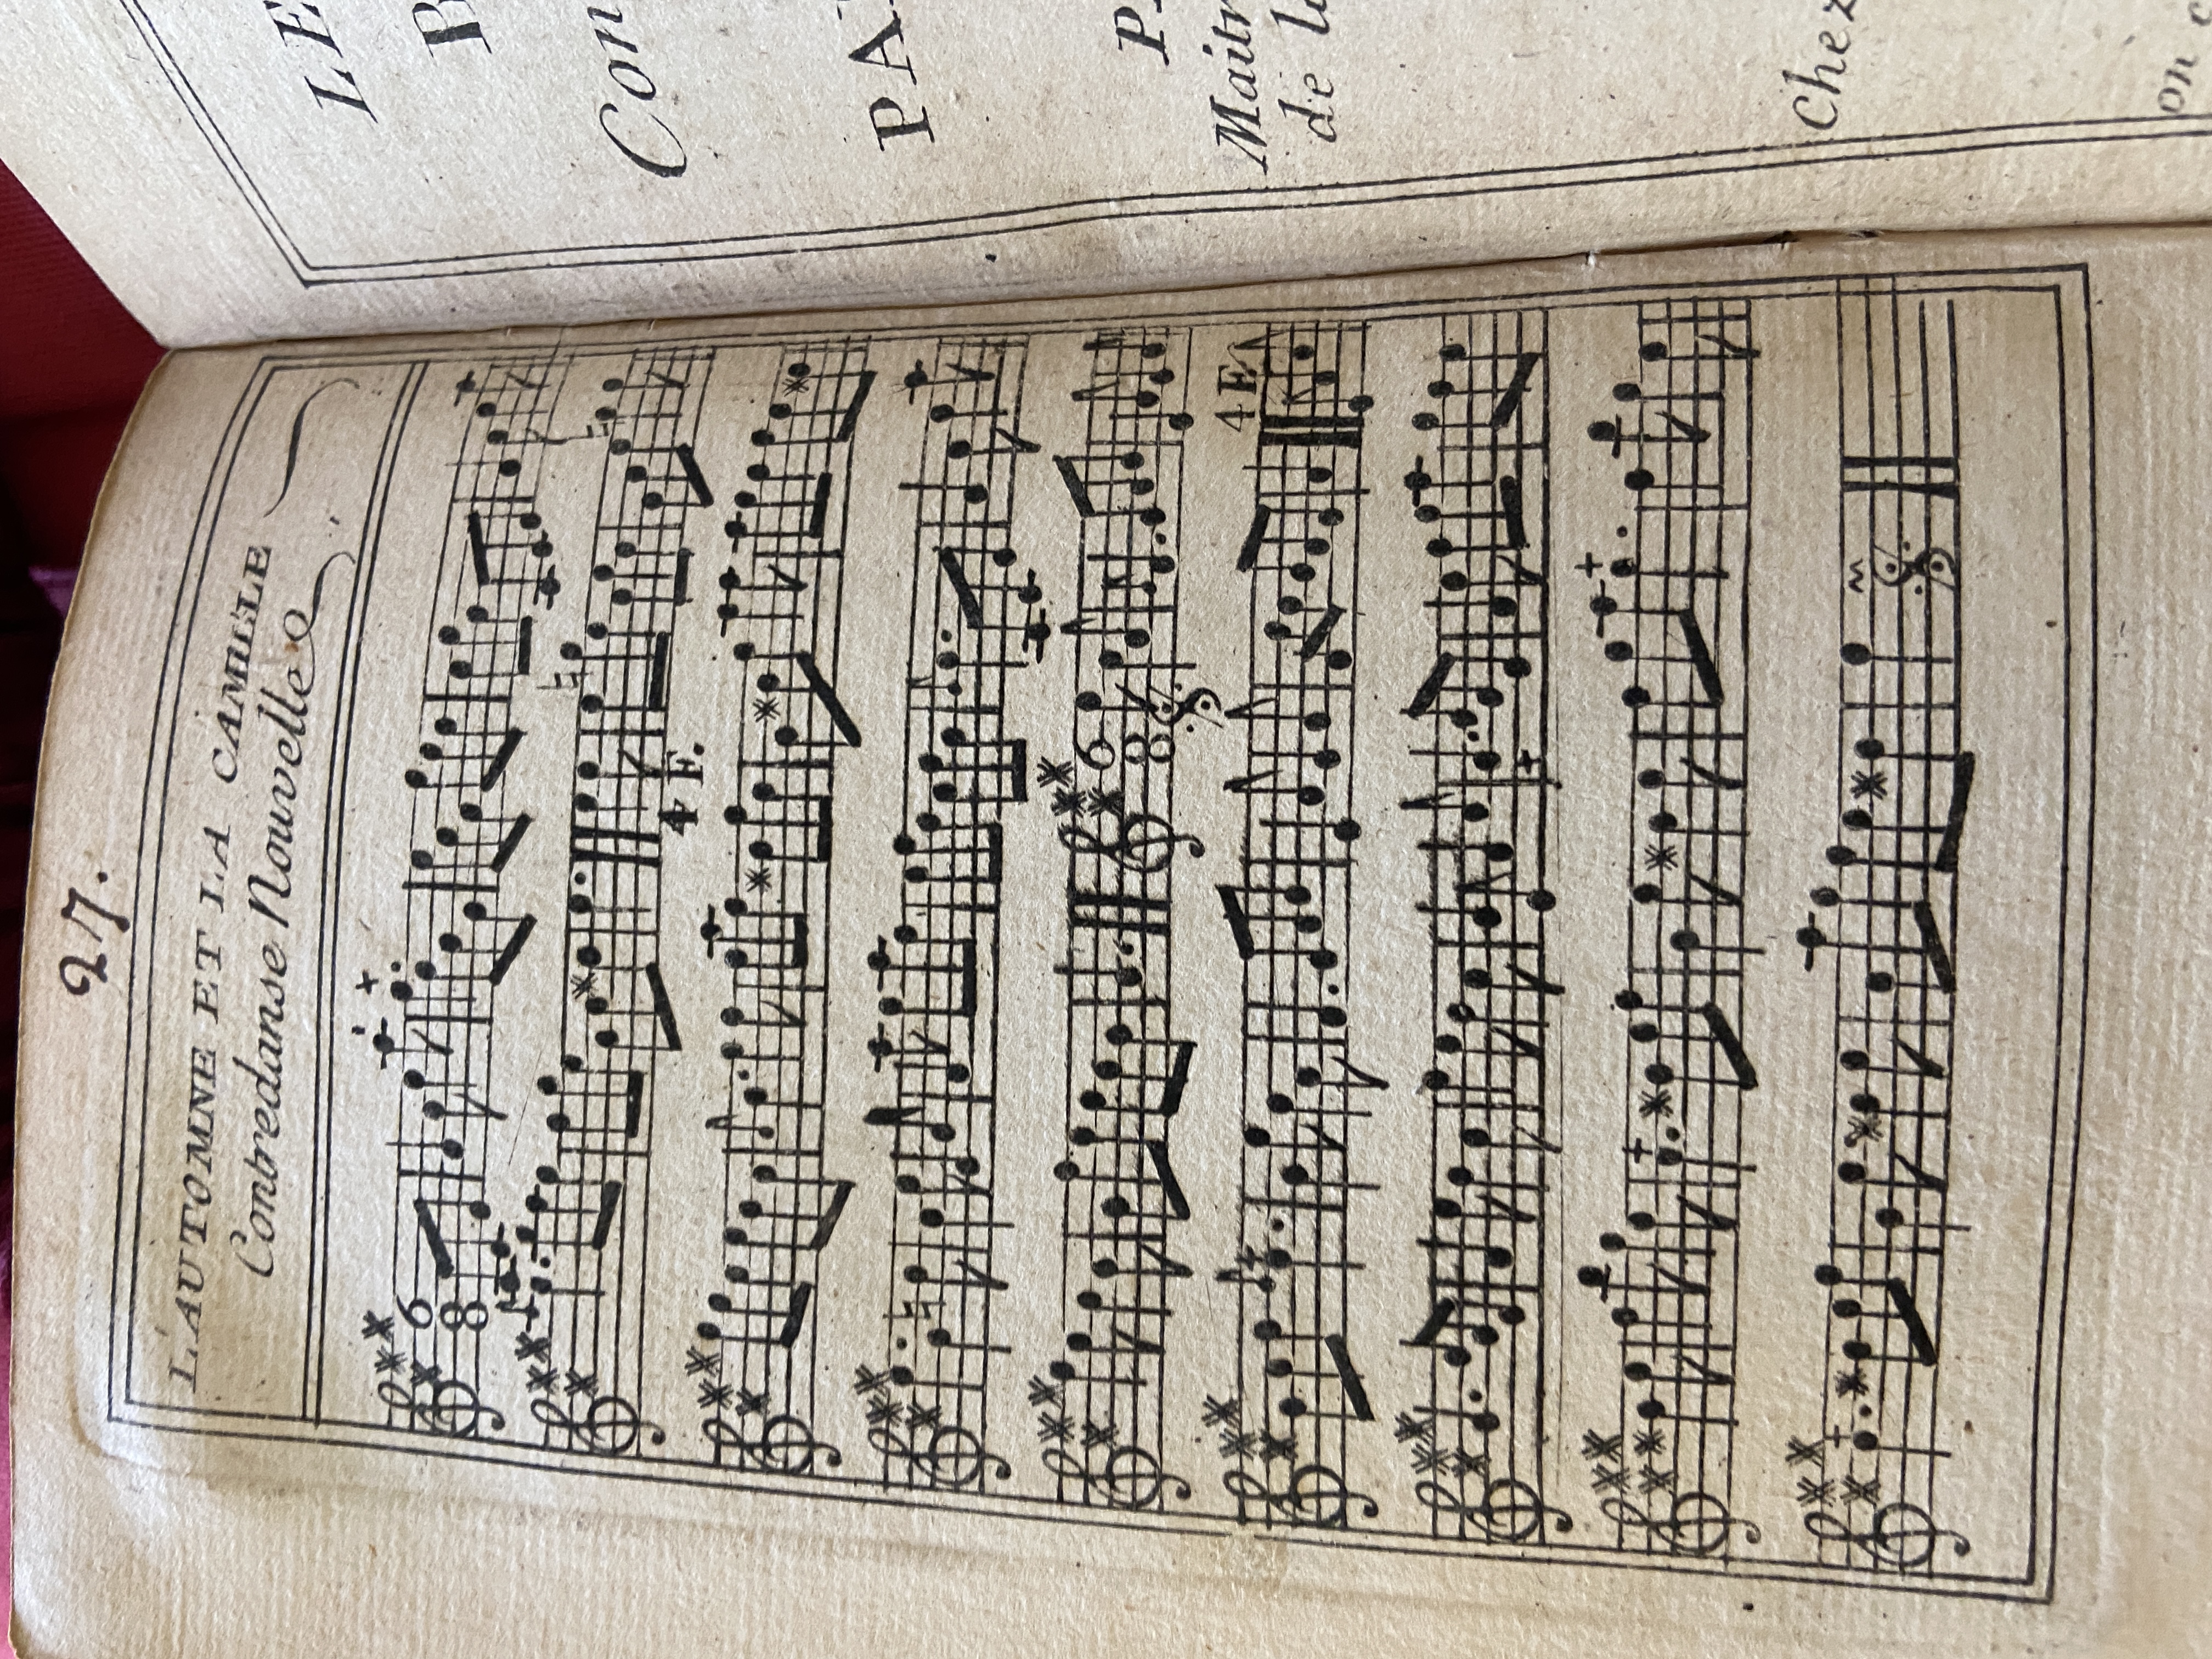 27.
L'AUTOMNE ET LA CAMILLE
Contredanse Nouvelle
6
8
4 F.
6
8
4 F
LE
Con
PA
P
Maitr
de l
Chez
on c